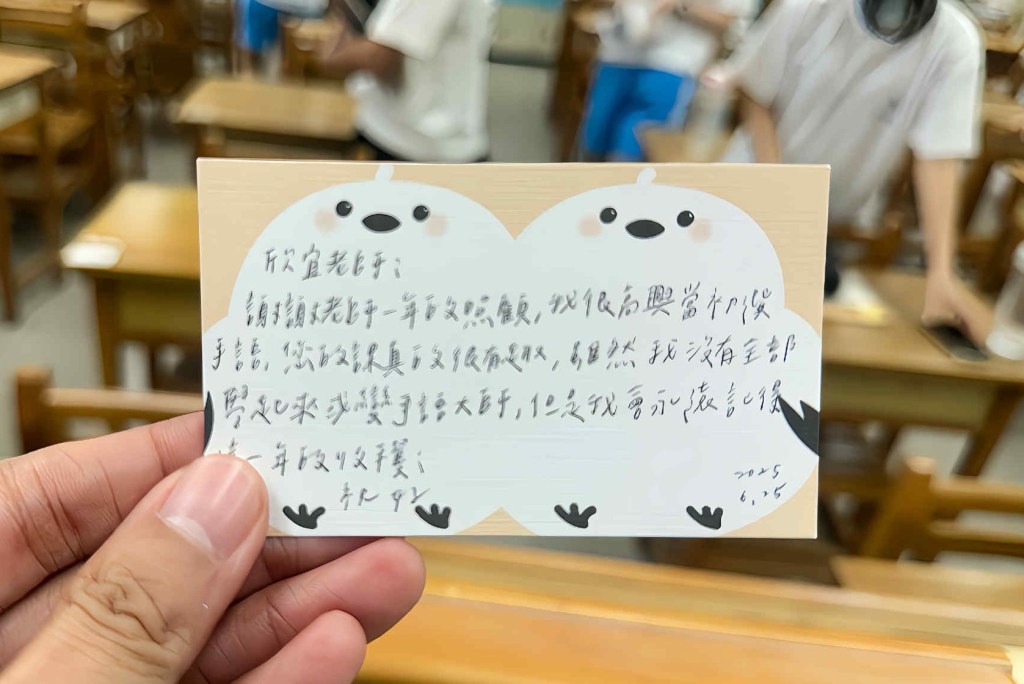 欣宜老師:
謝謝老師一年的照顧,我很高興當初選
手語,您的課真的很有趣,雖然我沒有全部
學起來或變手語大師,但是我會永遠記得
這一年的收穫;
2025
6.25